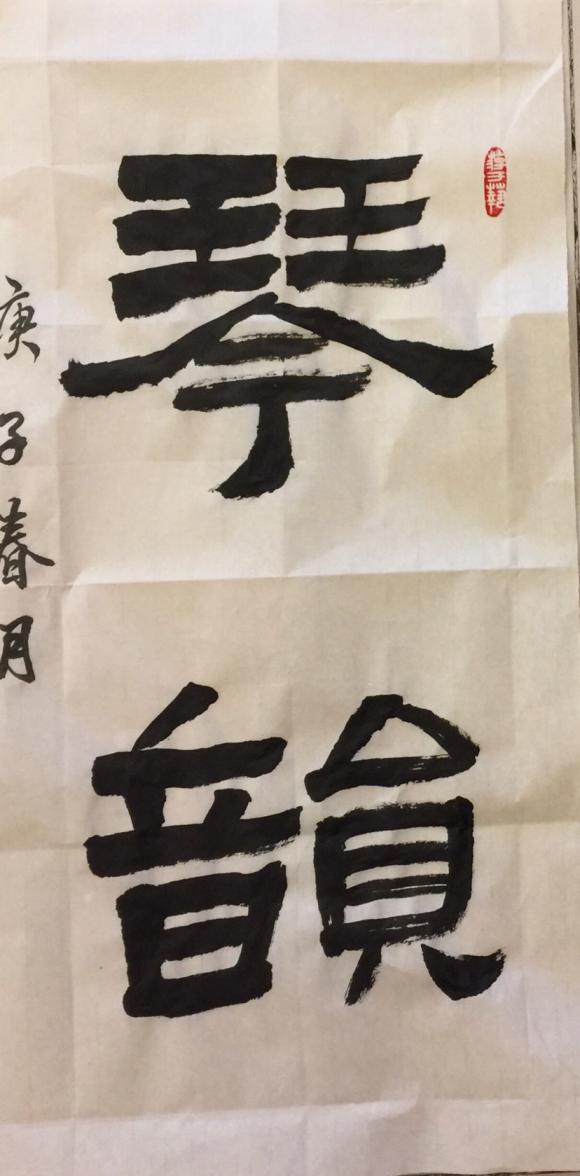 琴韻
庚子春月